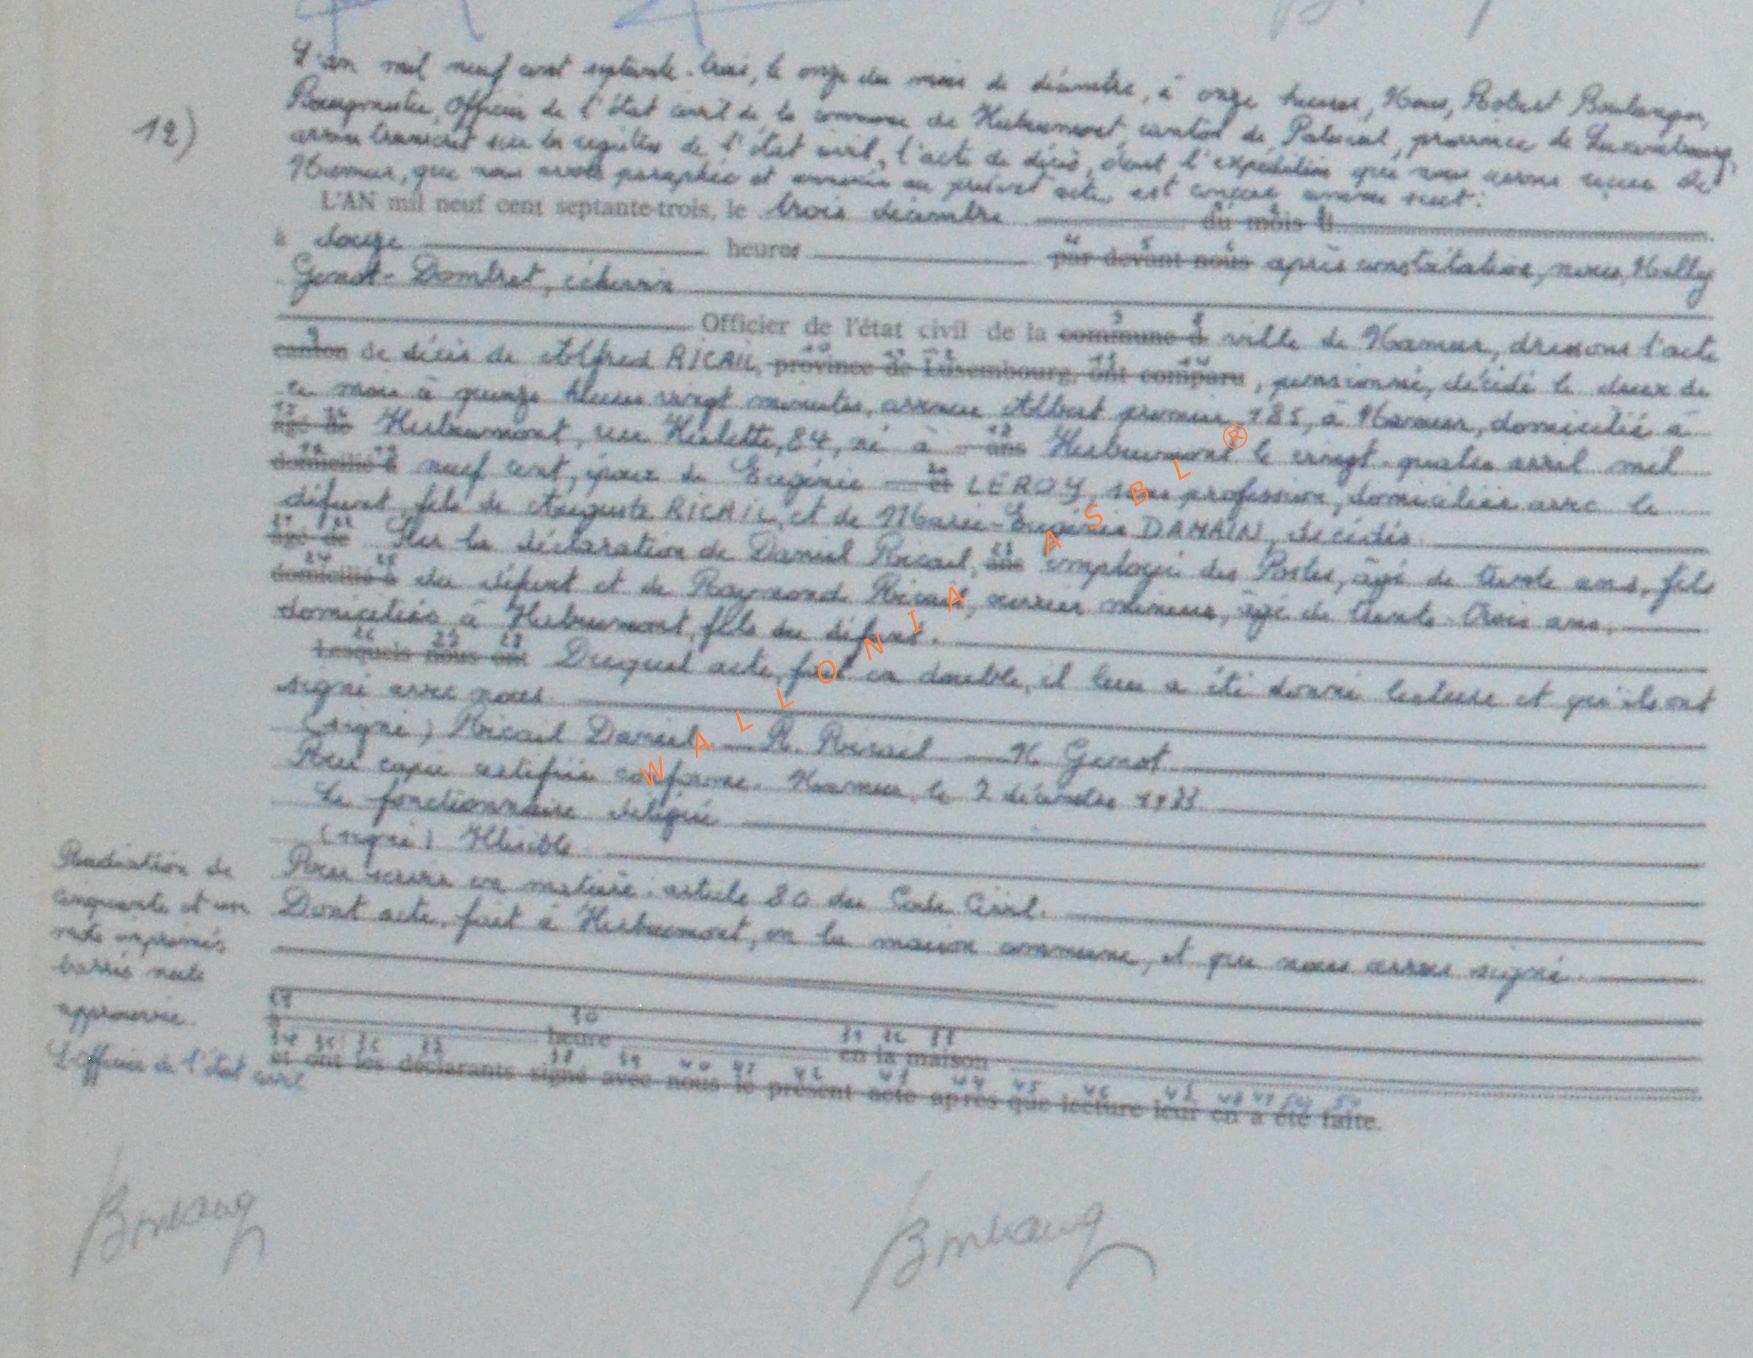 L'an mil neuf cent septante-trois, le onze du mois de décembre, à onze heures, Nous, Robert Boulanger,
12)
Bourgmestre, Officier de l'état civil de la commune de Herbeumont canton de Paliseul, province de Luxembourg,
avons transcrit sur les registres de l'état civil, l'acte de décès, dont l'expédition que nous avons reçue de
Namur, que nous avons paraphée et annexée au présent acte, est conçue comme suit:
L'AN mil neuf cent septante-trois, le trois décembre du mois d
à douze heures par devant nous après constatation, nous, Nelly
Genot-Dombret, échevin
Officier de l'état civil de la commune d ville de Namur, dressons l'acte
canton de décès de Alfred RICAIL, province de Luxembourg, ont comparu , pensionné, décédé le deux de
ce mois à quinze heures vingt minutes, avenue Albert premier 185, à Namur, domicilié à
âgé de Herbeumont, rue Hulette, 84, né à ans Herbeumont le vingt-quatre avril mil
domicilié à neuf cent, époux de Eugénie et LEROY, sans profession, domiciliée avec le
défunt, fils de Auguste RICAIL, et de Marie-Eugénie DAMAIN, décédés.
âgé de Sur la déclaration de Daniel Ricail, ans employé des Postes, âgé de trente ans, fils
domicilié à du défunt et de Raymond Ricail, ouvrier mineur, âgé de trente-trois ans,
domiciliés à Herbeumont, fils du défunt.
Lesquels nous ont Duquel acte, fait en double, il leur a été donné lecture et qu'ils ont
signé avec nous.
(signé) Ricail Daniel R. Ricail N Genot
Pour copie certifiée conforme. Namur, le 7 décembre 1973
Le fonctionnaire délégué
(signé) Illisible
Pour servir en matière: article 80 du Code Civil.
Dont acte, fait à Herbeumont, en la maison commune, et que nous avons signé
Radiation de
cinquante et un
mots imprimés
barrés nuls
approuvée.
L'officier de l'état civil
heure en la maison
et ont les déclarants signé avec nous le présent acte après que lecture leur en a été faite.
WALLONIA ASBL ®